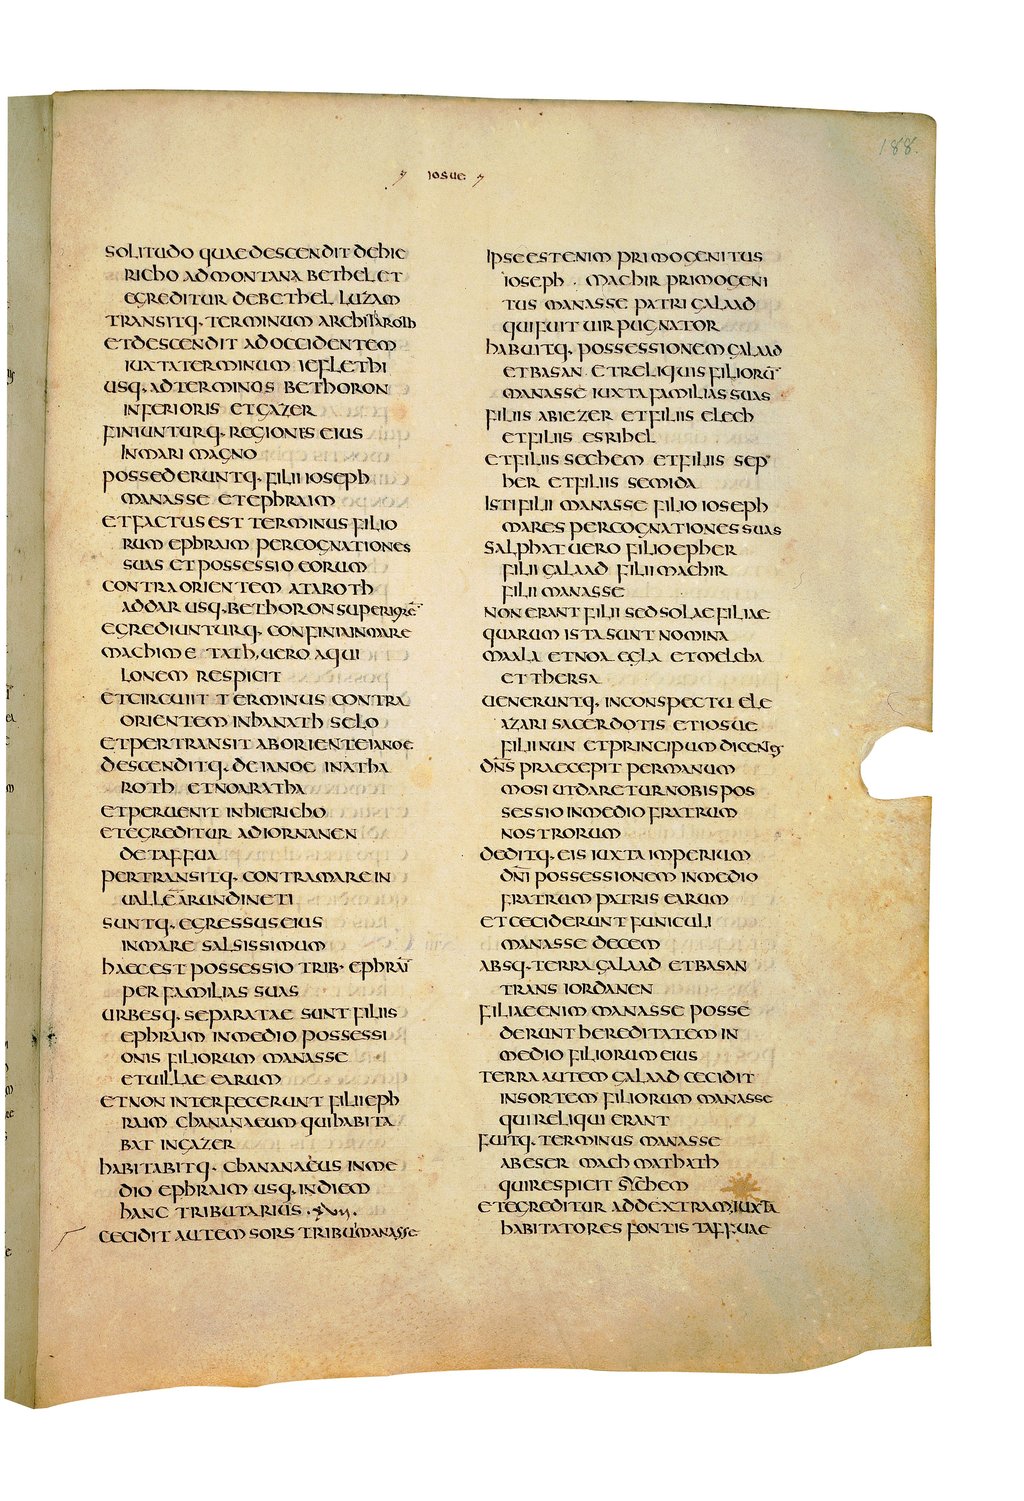 188.
IOSUE
SOLITUDO QUAE DESCENDIT DEHIE
RICHO AD MONTANA BETHEL ET
EGREDITUR DE BETHEL LUZAM
TRANSITQ· TERMINUM ARCHITAROTH
ET DESCENDIT AD OCCIDENTEM
IUXTA TERMINUM IEFLETHI
USQ· AD TERMINOS BETHORON
INFERIORIS ET GAZER
FINIUNTURQ· REGIONES EIUS
IN MARI MAGNO
POSSEDERUNTQ· FILII IOSEPH
MANASSE ET EPHRAIM
ET FACTUS EST TERMINUS FILIO
RUM EPHRAIM PER COGNATIONES
SUAS ET POSSESSIO EORUM
CONTRA ORIENTEM ATAROTH
ADDAR USQ· BETHORON SUPERIORĒ
EGREDIUNTURQ· CONFINIA IN MARE
MACHIME TATH, UERO AQUI
LONEM RESPICIT
ET CIRCUIIT TERMINUS CONTRA
ORIENTEM IN HANATH SELO
ET PERTRANSIT AB ORIENTE IANOE
DESCENDITQ· DE IANOE IN ATHA
ROTH ET NOARATHA
ET PERUENIT IN HIERICHO
ET EGREDITUR AD IORNANEN
DE TAFFUA
PERTRANSITQ· CONTRA MARE IN
UALLĒ ARUNDINETI
SUNTQ· EGRESSUS EIUS
IN MARE SALSISSIMUM
HAEC EST POSSESSIO TRIB· EPHRAI
PER FAMILIAS SUAS
URBESQ· SEPARATAE SUNT FILIIS
EPHRAIM IN MEDIO POSSESSI
ONIS FILIORUM MANASSE
ET UILLAE EARUM
ET NON INTERFECERUNT FILII EPH
RAIM CHANANAEUM QUI HABITA
BAT IN GAZER
HABITABITQ· CHANANAEUS IN ME
DIO EPHRAIM USQ· IN DIEM
HANC TRIBUTARIUS ·XVII·
CECIDIT AUTEM SORS TRIBUI MANASSE
IPSE EST ENIM PRIMOGENITUS
IOSEPH · MACHIR PRIMOGENI
TUS MANASSE PATRI GALAAD
QUI FUIT UIR PUGNATOR
HABUITQ· POSSESSIONEM GALAAD
ET BASAN ET RELIQUIS FILIORŪ
MANASSE IUXTA FAMILIAS SUAS
FILIIS ABIEZER ET FILIIS ELECH
ET FILIIS ESRIHEL
ET FILIIS SECHEM ET FILIIS SEP
HER ET FILIIS SEMIDA
ISTI FILII MANASSE FILIO IOSEPH
MARES PER COGNATIONES SUAS
SALPHAT UERO FILIO EPHER
FILII GALAAD FILII MACHIR
FILII MANASSE
NON ERANT FILII SED SOLAE FILIAE
QUARUM ISTA SUNT NOMINA
MAALA ET NOA EGLA ET MELCHA
ET THERSA
UENERUNTQ· IN CONSPECTU ELE
AZARI SACERDOTIS ET IOSUE
FILII NUN ET PRINCIPUM DICENTES
DN̄S PRAECEPIT PER MANUM
MOSI UT DARETUR NOBIS POS
SESSIO IN MEDIO FRATRUM
NOSTRORUM
DEDITQ· EIS IUXTA IMPERIUM
DN̄I POSSESSIONEM IN MEDIO
FRATRUM PATRIS EARUM
ET CECIDERUNT FUNICULI
MANASSE DECEM
ABSQ· TERRA GALAAD ET BASAN
TRANS IORDANEN
FILIAE ENIM MANASSE POSSE
DERUNT HEREDITATEM IN
MEDIO FILIORUM EIUS
TERRA AUTEM GALAAD CECIDIT
IN SORTEM FILIORUM MANASSE
QUI RELIQUI ERANT
FUITQ· TERMINUS MANASSE
AB ESER MACHMATHATH
QUI RESPICIT SYCHEM
ET EGREDITUR AD DEXTRAM, IUXTA
HABITATORES FONTIS TAFFUAE